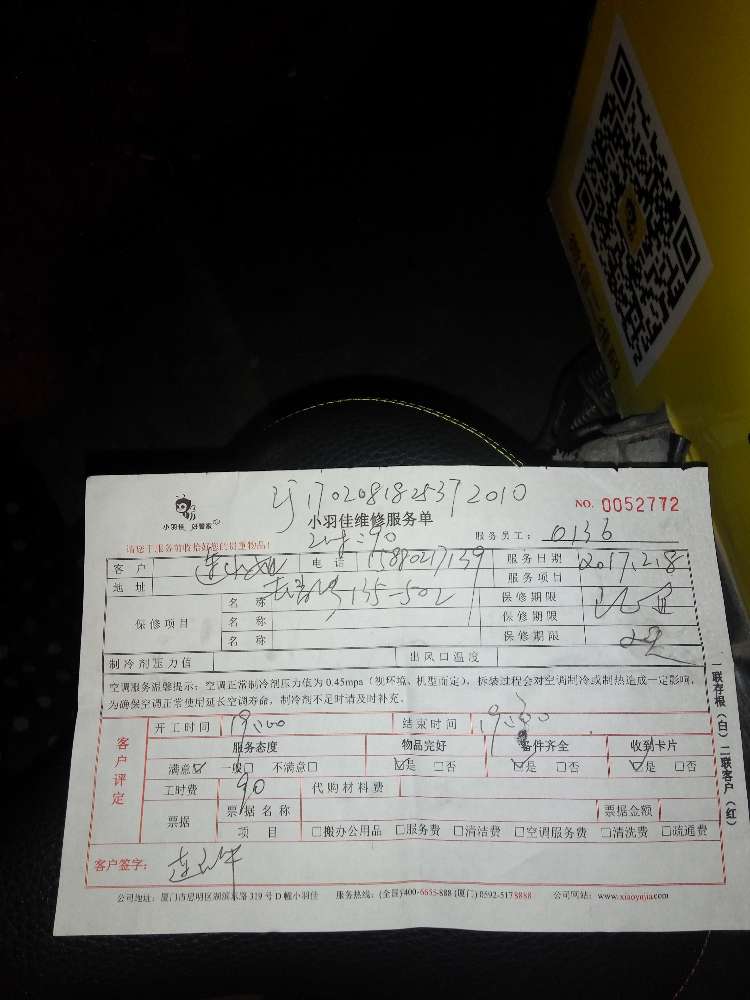 1702081825372010
NO. 0052772
小羽佳 好管家
小羽佳维修服务单
请您于服务前收拾好您的贵重物品!
服务员工: 0136
客户
电话
服务日期 2017.2.8
地址 135-502
服务项目
保修项目
名称
保修期限
名称
保修期限
名称
保修期限
制冷剂压力值
出风口温度
空调服务温馨提示:空调正常制冷剂压力值为0.45mpa(视环境、机型而定),拆装过程会对空调制冷或制热造成一定影响,
为确保空调正常使用延长空调寿命,制冷剂不足时请及时补充。
客户评定
开工时间 19:00
结束时间
服务态度 物品完好 备件齐全 收到卡片
满意☑ 一般□ 不满意□ ☑是 □否 ☑是 □否 ☑是 □否
工时费 90
代购材料费
票据
票据名称
票据金额
项目 □搬办公用品 □服务费 □清洁费 □空调服务费 □清洗费 □疏通费
客户签字:
公司地址:厦门市思明区湖滨东路319号D幢小羽佳 服务热线:(全国)400-6655-888 (厦门) 0592-5178888 公司网站:www.xiaoyujia.com
一联存根(白)二联客户(红)